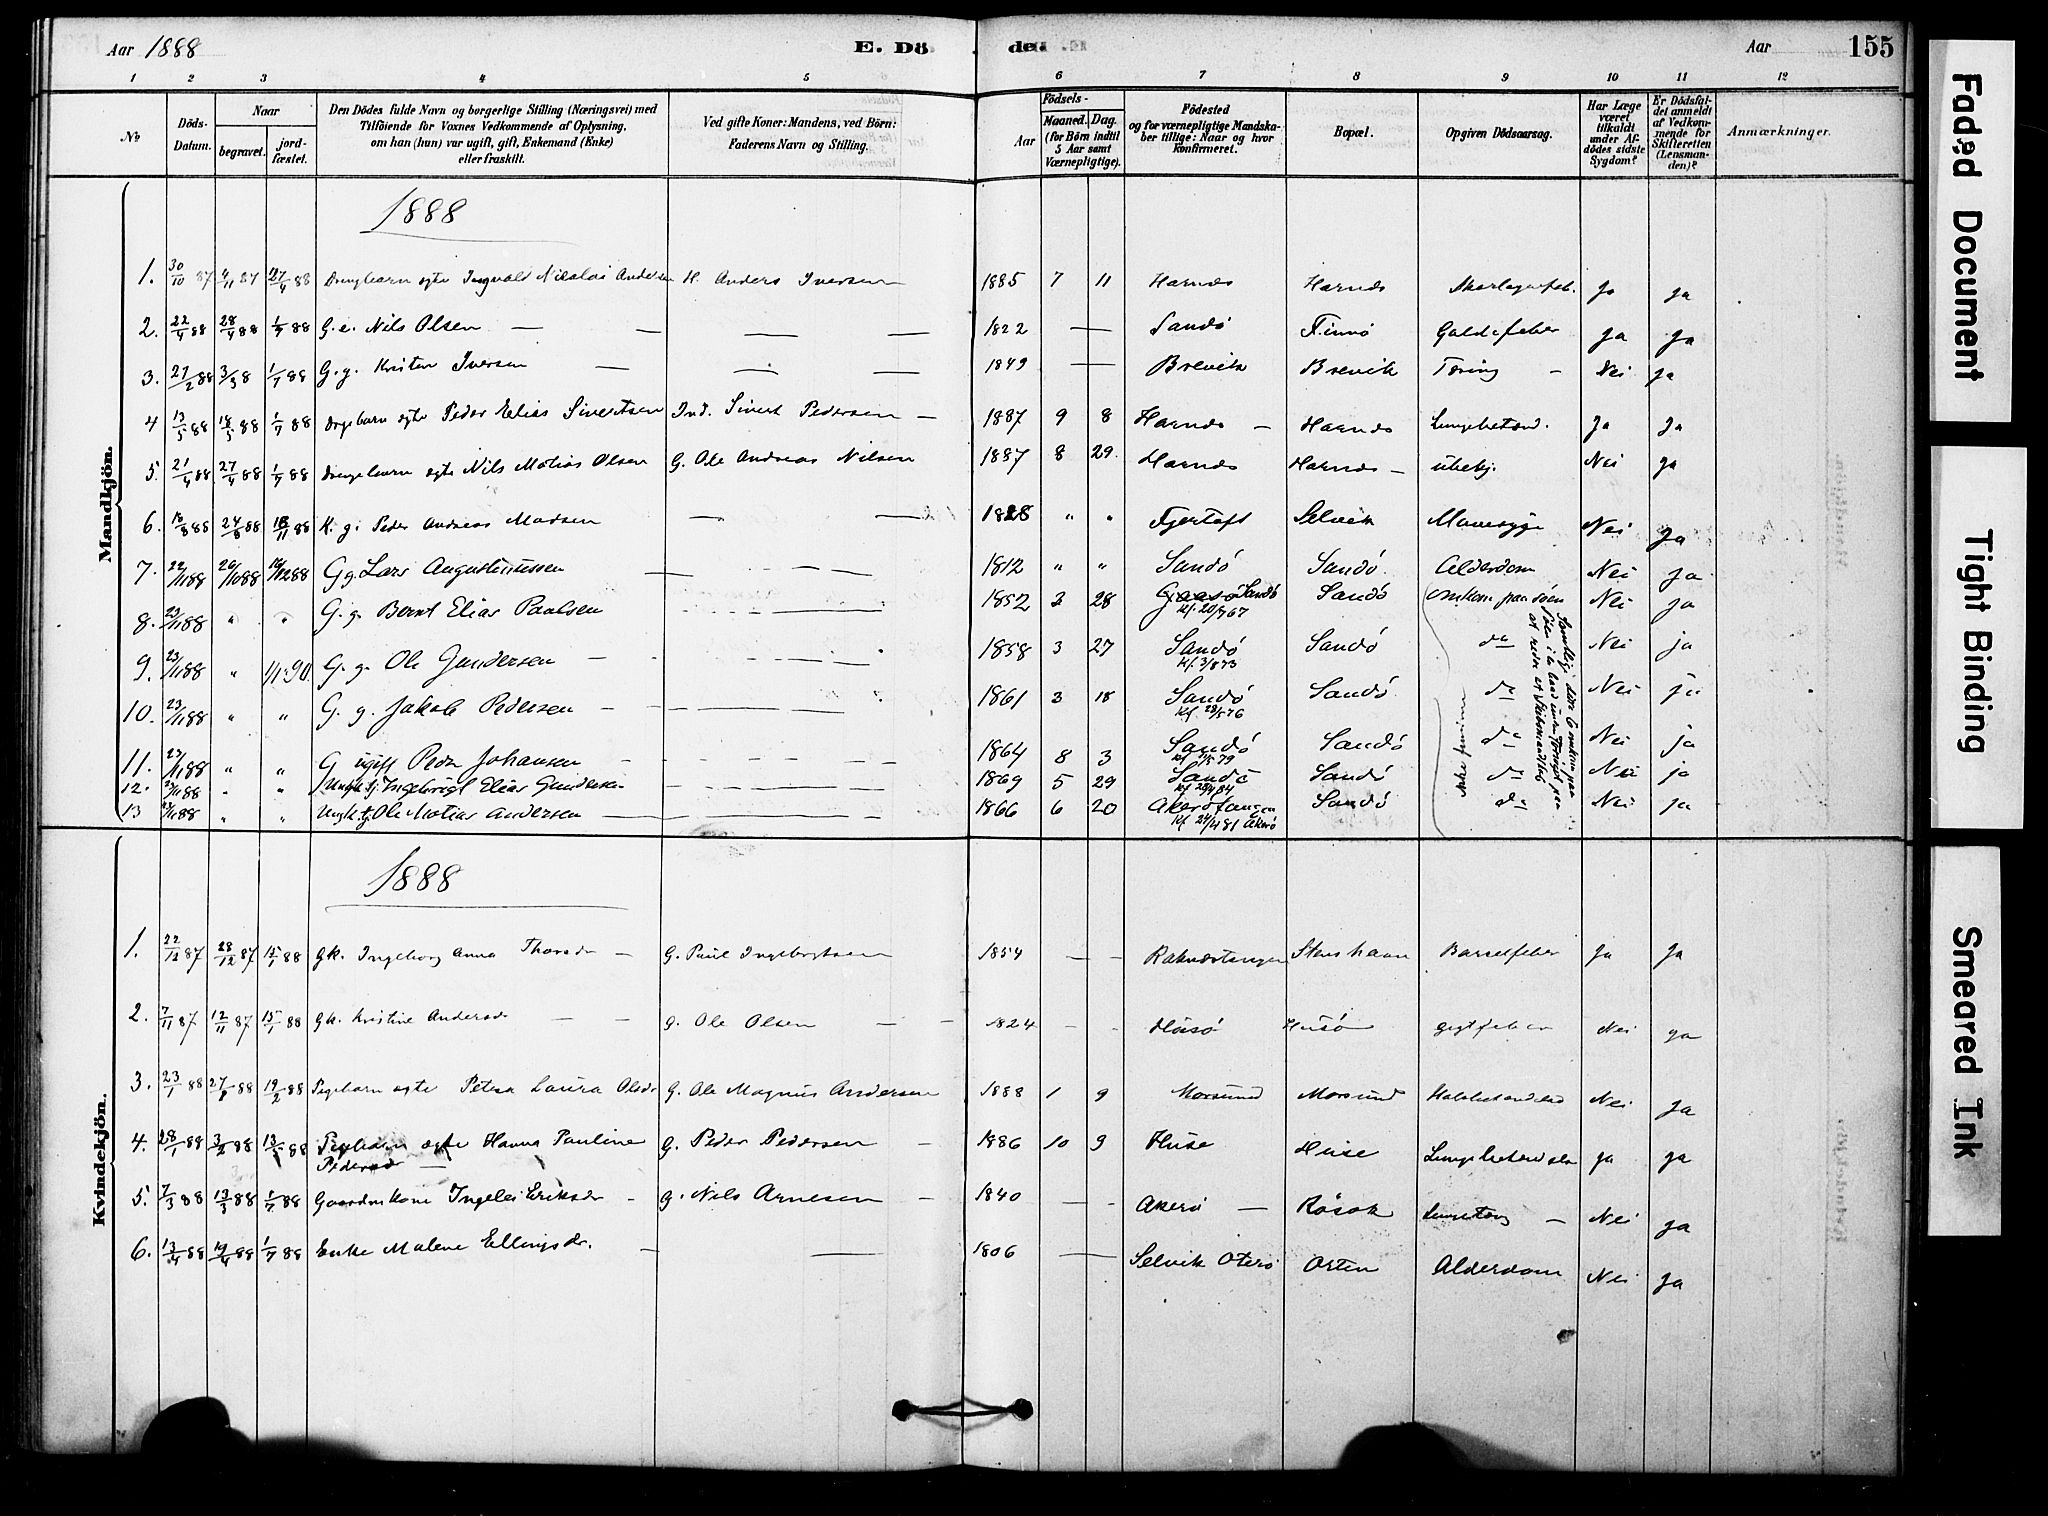 Aar 1888 E. Dö den Aar 155
1 2 3 4 5 6 7 8 9 10 11 12
No Döds-Datum. Naar begravet. jord-fæstet. Den Dödes fulde Navn og borgerlige Stilling (Næringsvei) med Tilföiende for Voxnes Vedkommende af Oplysning, om han (hun) var ugift, gift, Enkemand (Enke) eller fraskilt. Ved gifte Koner: Mandens, ved Börn: Faderens Navn og Stilling. Födsels- Aar Maaned. Dag. (for Börn indtil 5 Aar samt Værnepligtige). Födested og for værnepligtige Mandskaber tillige: Naar og hvor konfirmeret. Bopæl. Opgiven Dödsaarsag. Har Læge været tilkaldt under Afdödes sidste Sygdom? Er Dödsfaldet anmeldt af Vedkommende for Skifteretten (Lensmanden)? Anmærkninger.
Mandkjön.
1888
1. 30/10 87 4/11 87 27/4 88 Drengebarn egte Ingvald Nikolai Andersen H. Anders Iversen 1885 7 11 Harnes Harnes Skarlagenfeb. Ja Ja
2. 22/4 88 28/4 88 1/7 88 G.e. Nils Olsen — — — — 1822 — Sandö Finnö Galdefeber Ja Ja
3. 27/2 88 3/3 8 1/7 88 G.g. Kristen Iversen — — — 1849 — Brevik Brevik Tæring — Nei Ja
4 13/5 88 18/5 88 1/7 88 Drgebarn egte Peder Elias Sivertsen Ind. Sivert Pedersen — 1887 9 8 Harnes — Harnes Lungebetænd. Ja Ja
5. 21/4 88 27/4 88 1/7 88 Drengebarn egte Nils Matias Olsen G. Ole Andreas Nilsen 1887 8 29. Harnes Harnes — ubekj. Nei Ja
6. 18/8 88 24/8 88 18/11 88 K. g. Peder Andreas Madsen — — 1828 " " Fjertoft Selvik Mavesyge Nei Ja
7. 22/11 88 26/11 88 16/12 88 G g. Lars Augustinussen — — — — 1812 " " Sandö Sandö. Alderdom Nei Ja.
8. 23/11 88 " " G. g. Bernt Elias Paulsen — — — — 1852 3 28 Sandö Kf. 20/67 Sandö Omkom paa søen Nei Ja
9. 23/11 88 " 1/1 90 G. g. Ole Gundersen — — — — 1858 3 27 Sandö Kf. 3/8 73 Sandö do Nei ja
10. 23/11 88 " " G. g. Jakob Pedersen — — — — 1861 3 18 Sandö Kf. 28/5 76 Sandö. do Nei ja
11. 23/11 88 " " G ugift Peder Johansen — — — — 1864 8 3 Sandö Kf 79 Sandö do Nei ja
12. 23/11 88 " " Ungk. g. Ingebrigt Elias Gundersen — — — — 1869 5 29 Sandö Kf 84 Sandö do Nei ja
13 23/11 88 " " Ungk. g. Ole Matias Andersen — — — — 1866 6 20 Akerötangen Kf 24/4 81 Akerö Sandö do Nei ja
Ikke fundne
Samtlige disse 6 omkom paa
Kvindekjön.
1888
1. 22/12 87 28/12 87 15/1 88 Gk. Ingeborg Anna Thorsdr — G. Paul Ingebrigtsen 1854 — — Raknestangen Stenshavn Barselfeber Ja Ja
2. 7/11 87 12/11 87 15/1 88 Gk. Kristine Andersdr — — G. Ole Olsen — — 1824 — — Husö Husö Gigtfeber Nei Ja
3. 23/1 88 27/1 88 19/2 88 Pigebarn egte Petra Laura Olsdr G. Ole Magnus Andersen 1888 1 9 Morsund Morsund Halsbetændelse Nei Ja
4. 28/1 88 3/2 88 13/ 88 Pigebarn egte Hanna Pauline Pedersdr — G. Peder Pedersen — 1886 10 9 Huse Huse Lungebetændelse Ja Ja
5. 7/3 88 13/3 88 1/7 88 Gaardmskone Ingelei Eriksdr — G. Nils Arnesen — 1840 — — Akerö — Røsok Lungetæring — Nei Ja
6. 13/4 88 19/4 88 1/7 88 Enke Malene Ellingsdr. — — 1806 — Selvik Oterö Orten Alderdom Nei Ja
Faded Document
Tight Binding
Smeared Ink